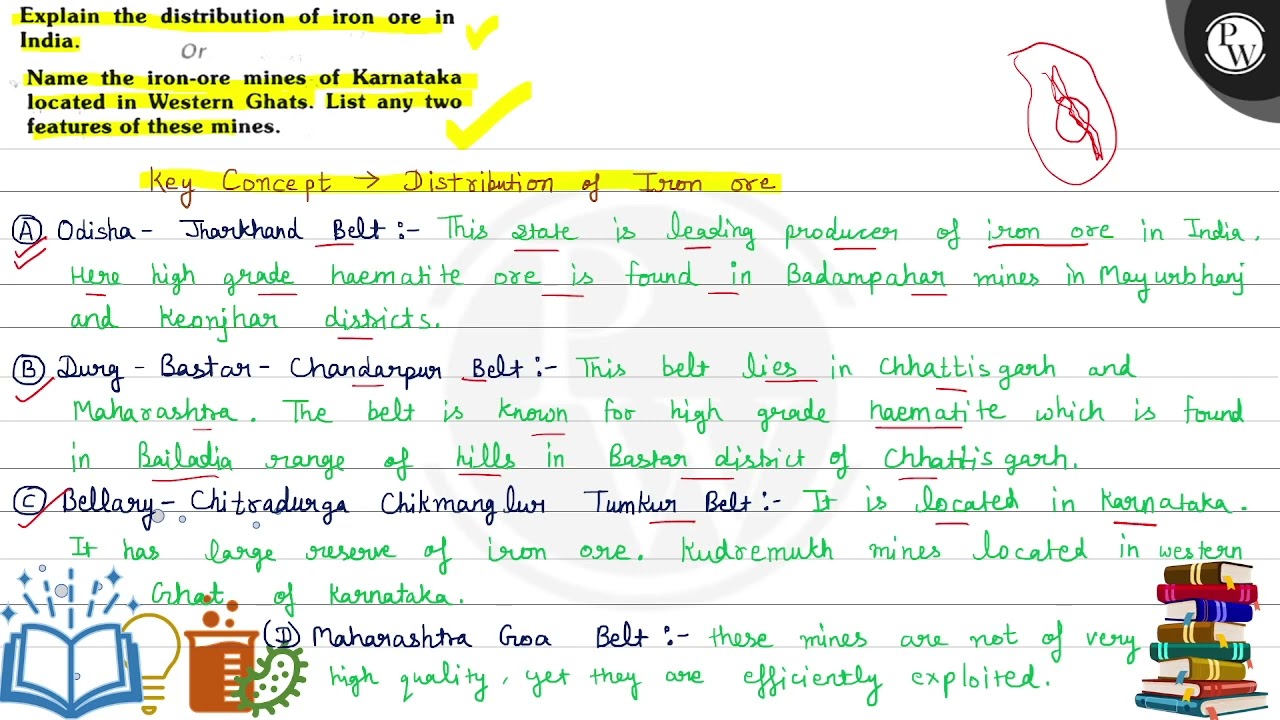 Explain the distribution of iron ore in
India.
Or
Name the iron-ore mines of Karnataka
located in Western Ghats. List any two
features of these mines.
PW
Key Concept → Distribution of Iron ore
(A) Odisha - Jharkhand Belt :- This state is leading producer of iron ore in India.
Here high grade haematite ore is found in Badampahar mines in Mayurbhanj
and Keonjhar districts.
(B) Durg - Bastar - Chandarpur Belt :- This belt lies in Chhattisgarh and
Maharashtra. The belt is known for high grade haematite which is found
in Bailadia range of hills in Bastar district of Chhattisgarh.
(C) Bellary - Chitradurga Chikmanglur Tumkur Belt :- It is located in Karnataka.
It has large reserve of iron ore. Kudremukh mines located in western
Ghat of Karnataka.
(D) Maharashtra Goa Belt :- these mines are not of very
high quality, yet they are efficiently exploited.